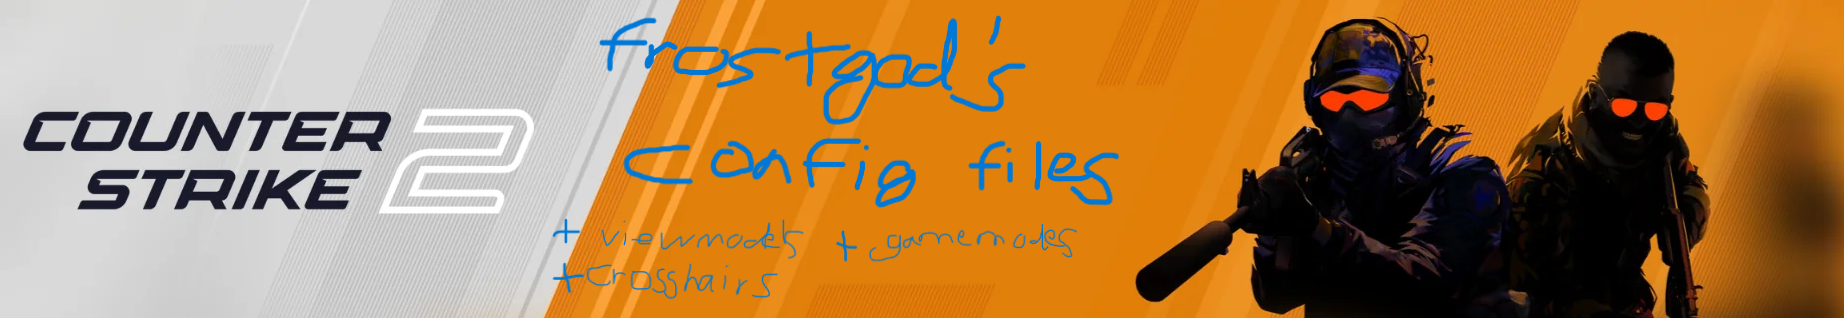 COUNTER
STRIKE 2
frostgod's
config files
+ viewmodels + gamemodes
+ crosshairs